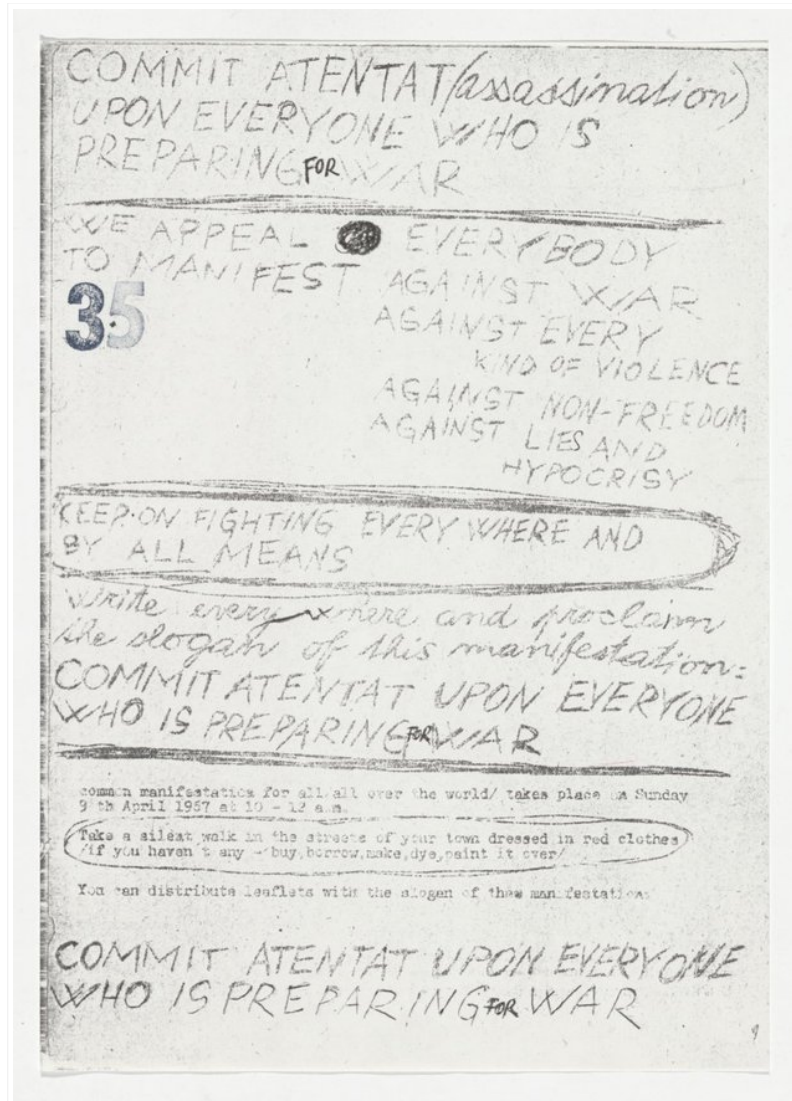 COMMIT ATENTAT (assassination)
UPON EVERYONE WHO IS
PREPARING FOR WAR
WE APPEAL EVERYBODY
TO MANIFEST AGAINST WAR
35
AGAINST EVERY
KIND OF VIOLENCE
AGAINST NON-FREEDOM
AGAINST LIES AND
HYPOCRISY
KEEP ON FIGHTING EVERY WHERE AND
BY ALL MEANS
Write every where and proclaim
the slogan of this manifestation:
COMMIT ATENTAT UPON EVERYONE
WHO IS PREPARING FOR WAR
common manifestation for all all over the world/ takes place on Sunday
9 th April 1967 at 10 - 12 a.m.
Take a silent walk in the streets of your town dressed in red clothes
/if you haven't any - buy, borrow, make, dye, paint it over/
You can distribute leaflets with the slogan of manifestation
COMMIT ATENTAT UPON EVERYONE
WHO IS PREPARING FOR WAR